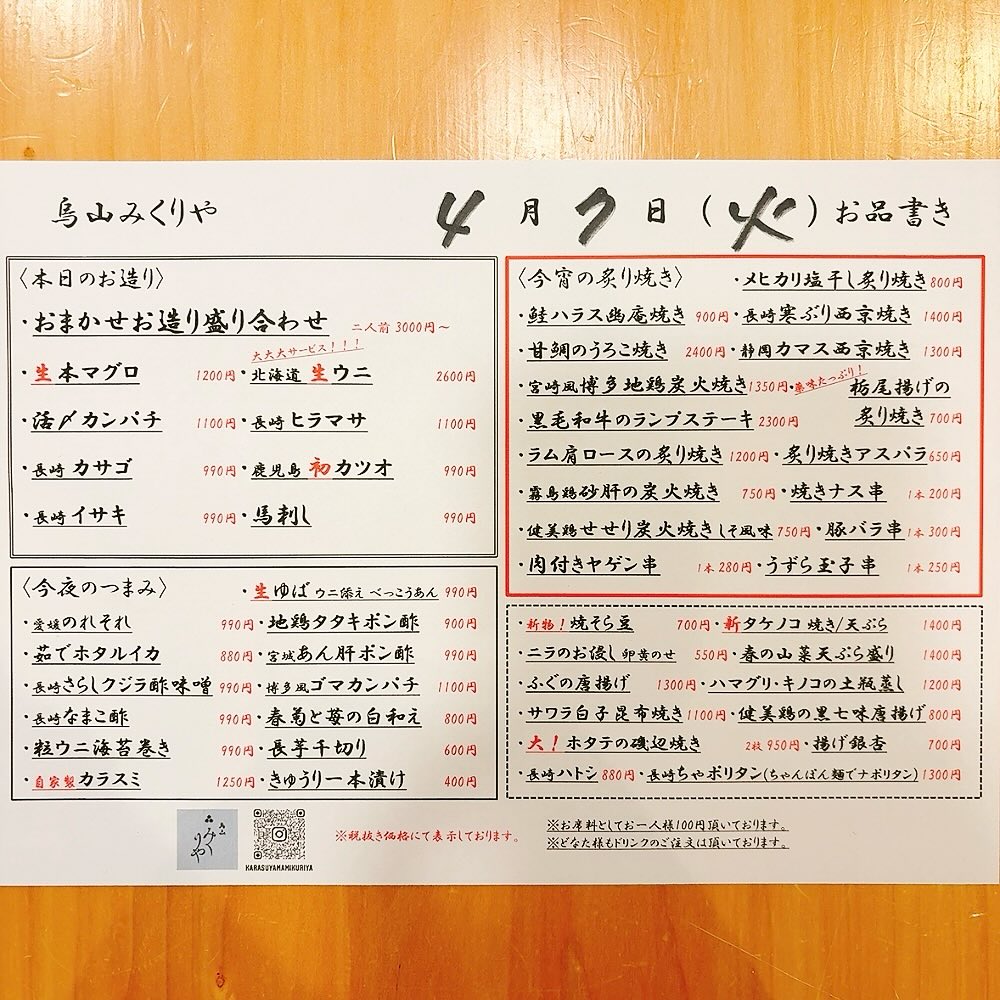 烏山みくりや 4月7日(火)お品書き
〈本日のお造り〉
・おまかせお造り盛り合わせ 二人前 3000円〜
大大大サービス!!!
・生本マグロ 1200円 ・北海道 生ウニ 2600円
・活〆カンパチ 1100円 ・長崎 ヒラマサ 1100円
・長崎 カサゴ 990円 ・鹿児島 初カツオ 990円
・長崎 イサキ 990円 ・馬刺し 990円
〈今夜のつまみ〉 ・生ゆば ウニ添え べっこうあん 990円
・愛媛のれそれ 990円 ・地鶏タタキポン酢 900円
・茹でホタルイカ 880円 ・宮城あん肝ポン酢 990円
・長崎さらしクジラ酢味噌 990円 ・博多風ゴマカンパチ 1100円
・長崎なまこ酢 990円 ・春菊と苺の白和え 800円
・粒ウニ海苔巻き 990円 ・長芋千切り 600円
・自家製カラスミ 1250円 ・きゅうり一本漬け 400円
〈今宵の炙り焼き〉 ・メヒカリ塩干し炙り焼き 800円
・鮭ハラス幽庵焼き 900円 ・長崎寒ぶり西京焼き 1400円
・甘鯛のうろこ焼き 2400円 ・静岡カマス西京焼き 1300円
・宮崎風博多地鶏炭火焼き 1350円 ・薬味たっぷり! 栃尾揚げの
・黒毛和牛のランプステーキ 2300円 炙り焼き 700円
・ラム肩ロースの炙り焼き 1200円 ・炙り焼きアスパラ 650円
・霧島鶏砂肝の炭火焼き 750円 ・焼きナス串 1本 200円
・健美鶏せせり炭火焼きしそ風味 750円 ・豚バラ串 1本 300円
・肉付きヤゲン串 1本 280円 ・うずら玉子串 1本 250円
・新物!焼そら豆 700円 ・新タケノコ 焼き/天ぷら 1400円
・ニラのお浸し 卵黄のせ 550円 ・春の山菜天ぷら盛り 1400円
・ふぐの唐揚げ 1300円 ・ハマグリ・キノコの土瓶蒸し 1200円
・サワラ白子昆布焼き 1100円 ・健美鶏の黒七味唐揚げ 800円
・大!ホタテの磯辺焼き 2枚 950円 ・揚げ銀杏 700円
・長崎ハトシ 880円 ・長崎ちゃポリタン(ちゃんぽん麺でナポリタン) 1300円
みくりや
KARASUYAMAMIKURIYA
※税抜き価格にて表示しております。
※お席料としてお一人様100円頂いております。
※どなた様もドリンクのご注文は頂いております。